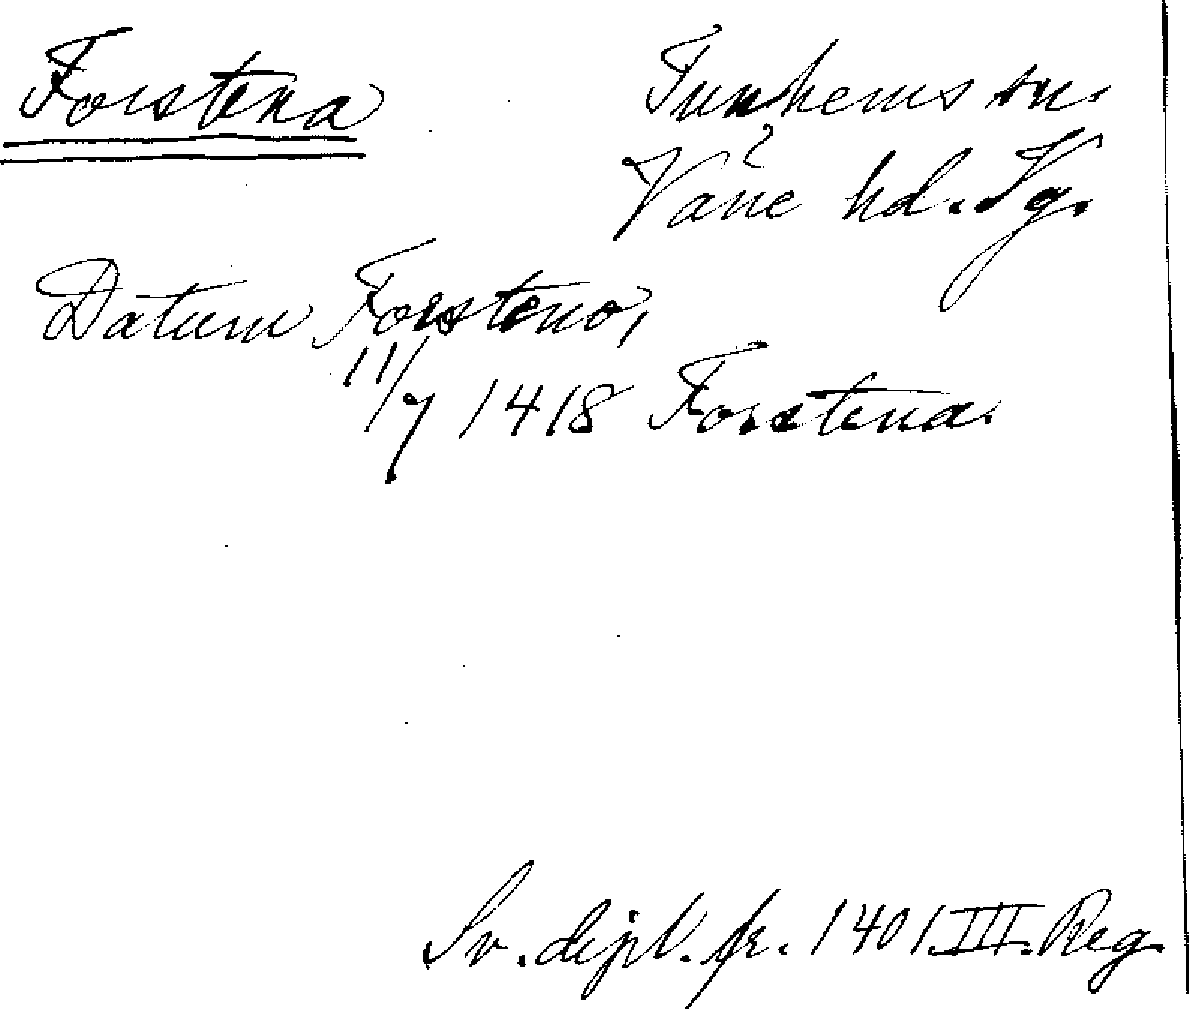 Forstena
Tunhems sn.
Väne hd. Vg.
Datum Forsteno,
11/7 1418 Forstena.
Sv. dipl. fr. 1401 III. Reg.